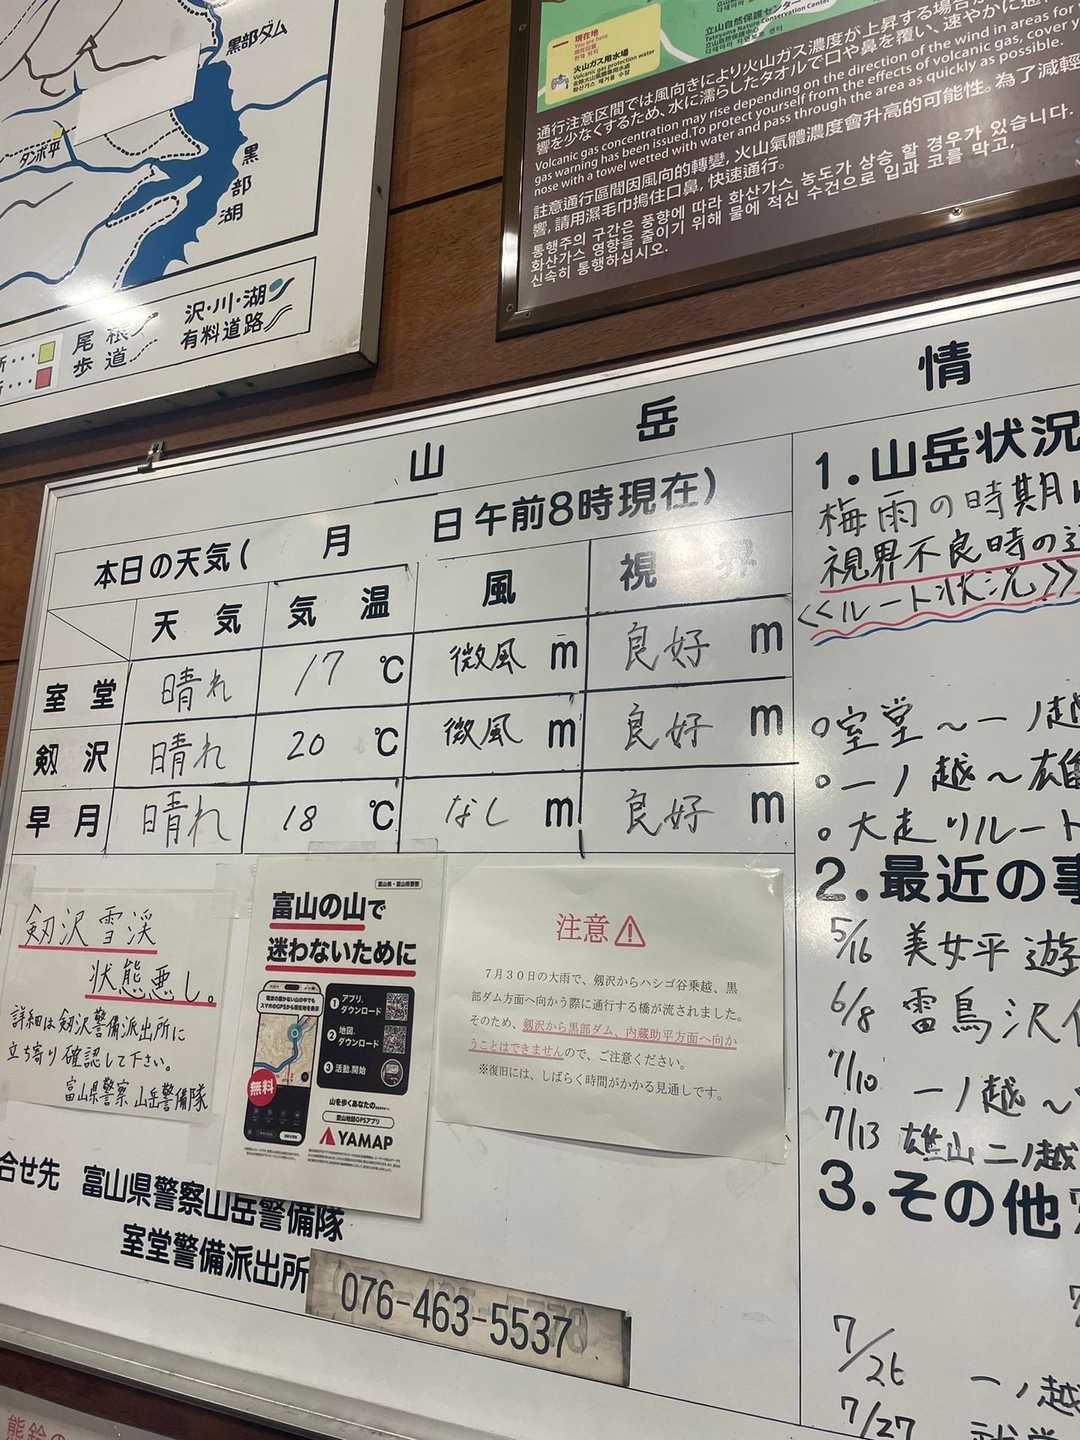 黒部ダム
タンボ平
黒部湖
尾根
歩道
沢・川・湖
有料道路
現在地
You are here
火山ガス用水場
Volcanic gas protection water
立山自然保護センター
Tateyama Nature Conservation Center
通行注意区間では風向きにより火山ガス濃度が上昇する場合が
響を少なくするため、水に濡らしたタオルで口や鼻を覆い、速やかに通
Volcanic gas concentration may rise depending on the direction of the wind in areas for
gas warning has been issued.To protect yourself from the effects of volcanic gas, cover y
nose with a towel wetted with water and pass through the area as quickly as possible.
註意通行區間因風向的轉變,火山氣體濃度會升高的可能性。為了減輕
響,請用濕毛巾摀住口鼻,快速通行。
통행주의 구간은 풍향에 따라 화산가스 농도가 상승 할 경우가 있습니다.
화산가스 영향을 줄이기 위해 물에 적신 수건으로 입과 코를 막고,
신속히 통행하십시오.
山岳情
本日の天気( 月 日午前8時現在)
天気 気温 風 視界
室堂 晴れ 17 ℃ 微風 m 良好 m
剱沢 晴れ 20 ℃ 微風 m 良好 m
早月 晴れ 18 ℃ なし m 良好 m
剱沢雪渓
状態悪し。
詳細は剱沢警備派出所に
立ち寄り確認して下さい。
富山県警察 山岳警備隊
富山県・富山県警察
富山の山で
迷わないために
電波の届かない山の中でも
スマホのGPSから現在地を表示
無料
1 アプリ ダウンロード
2 地図 ダウンロード
3 活動 開始
山を歩くあなたの
登山地図GPSアプリ
YAMAP
注意
7月30日の大雨で、剱沢からハシゴ谷乗越、黒
部ダム方面へ向かう際に通行する橋が流されました。
そのため、剱沢から黒部ダム、内蔵助平方面へ向か
うことはできませんので、ご注意ください。
※復旧には、しばらく時間がかかる見通しです。
合せ先 富山県警察山岳警備隊
室堂警備派出所
076-463-5537
1.山岳状況
梅雨の時期
視界不良時の
<<ルート状況>>
○室堂～一ノ越
○一ノ越～雄
○大走りルート
2.最近の事
5/16 美女平 遊
6/8 雷鳥沢
7/10 一ノ越～
7/13 雄山 二ノ越
3.その他
7/26 一ノ越
7/27
熊鈴の